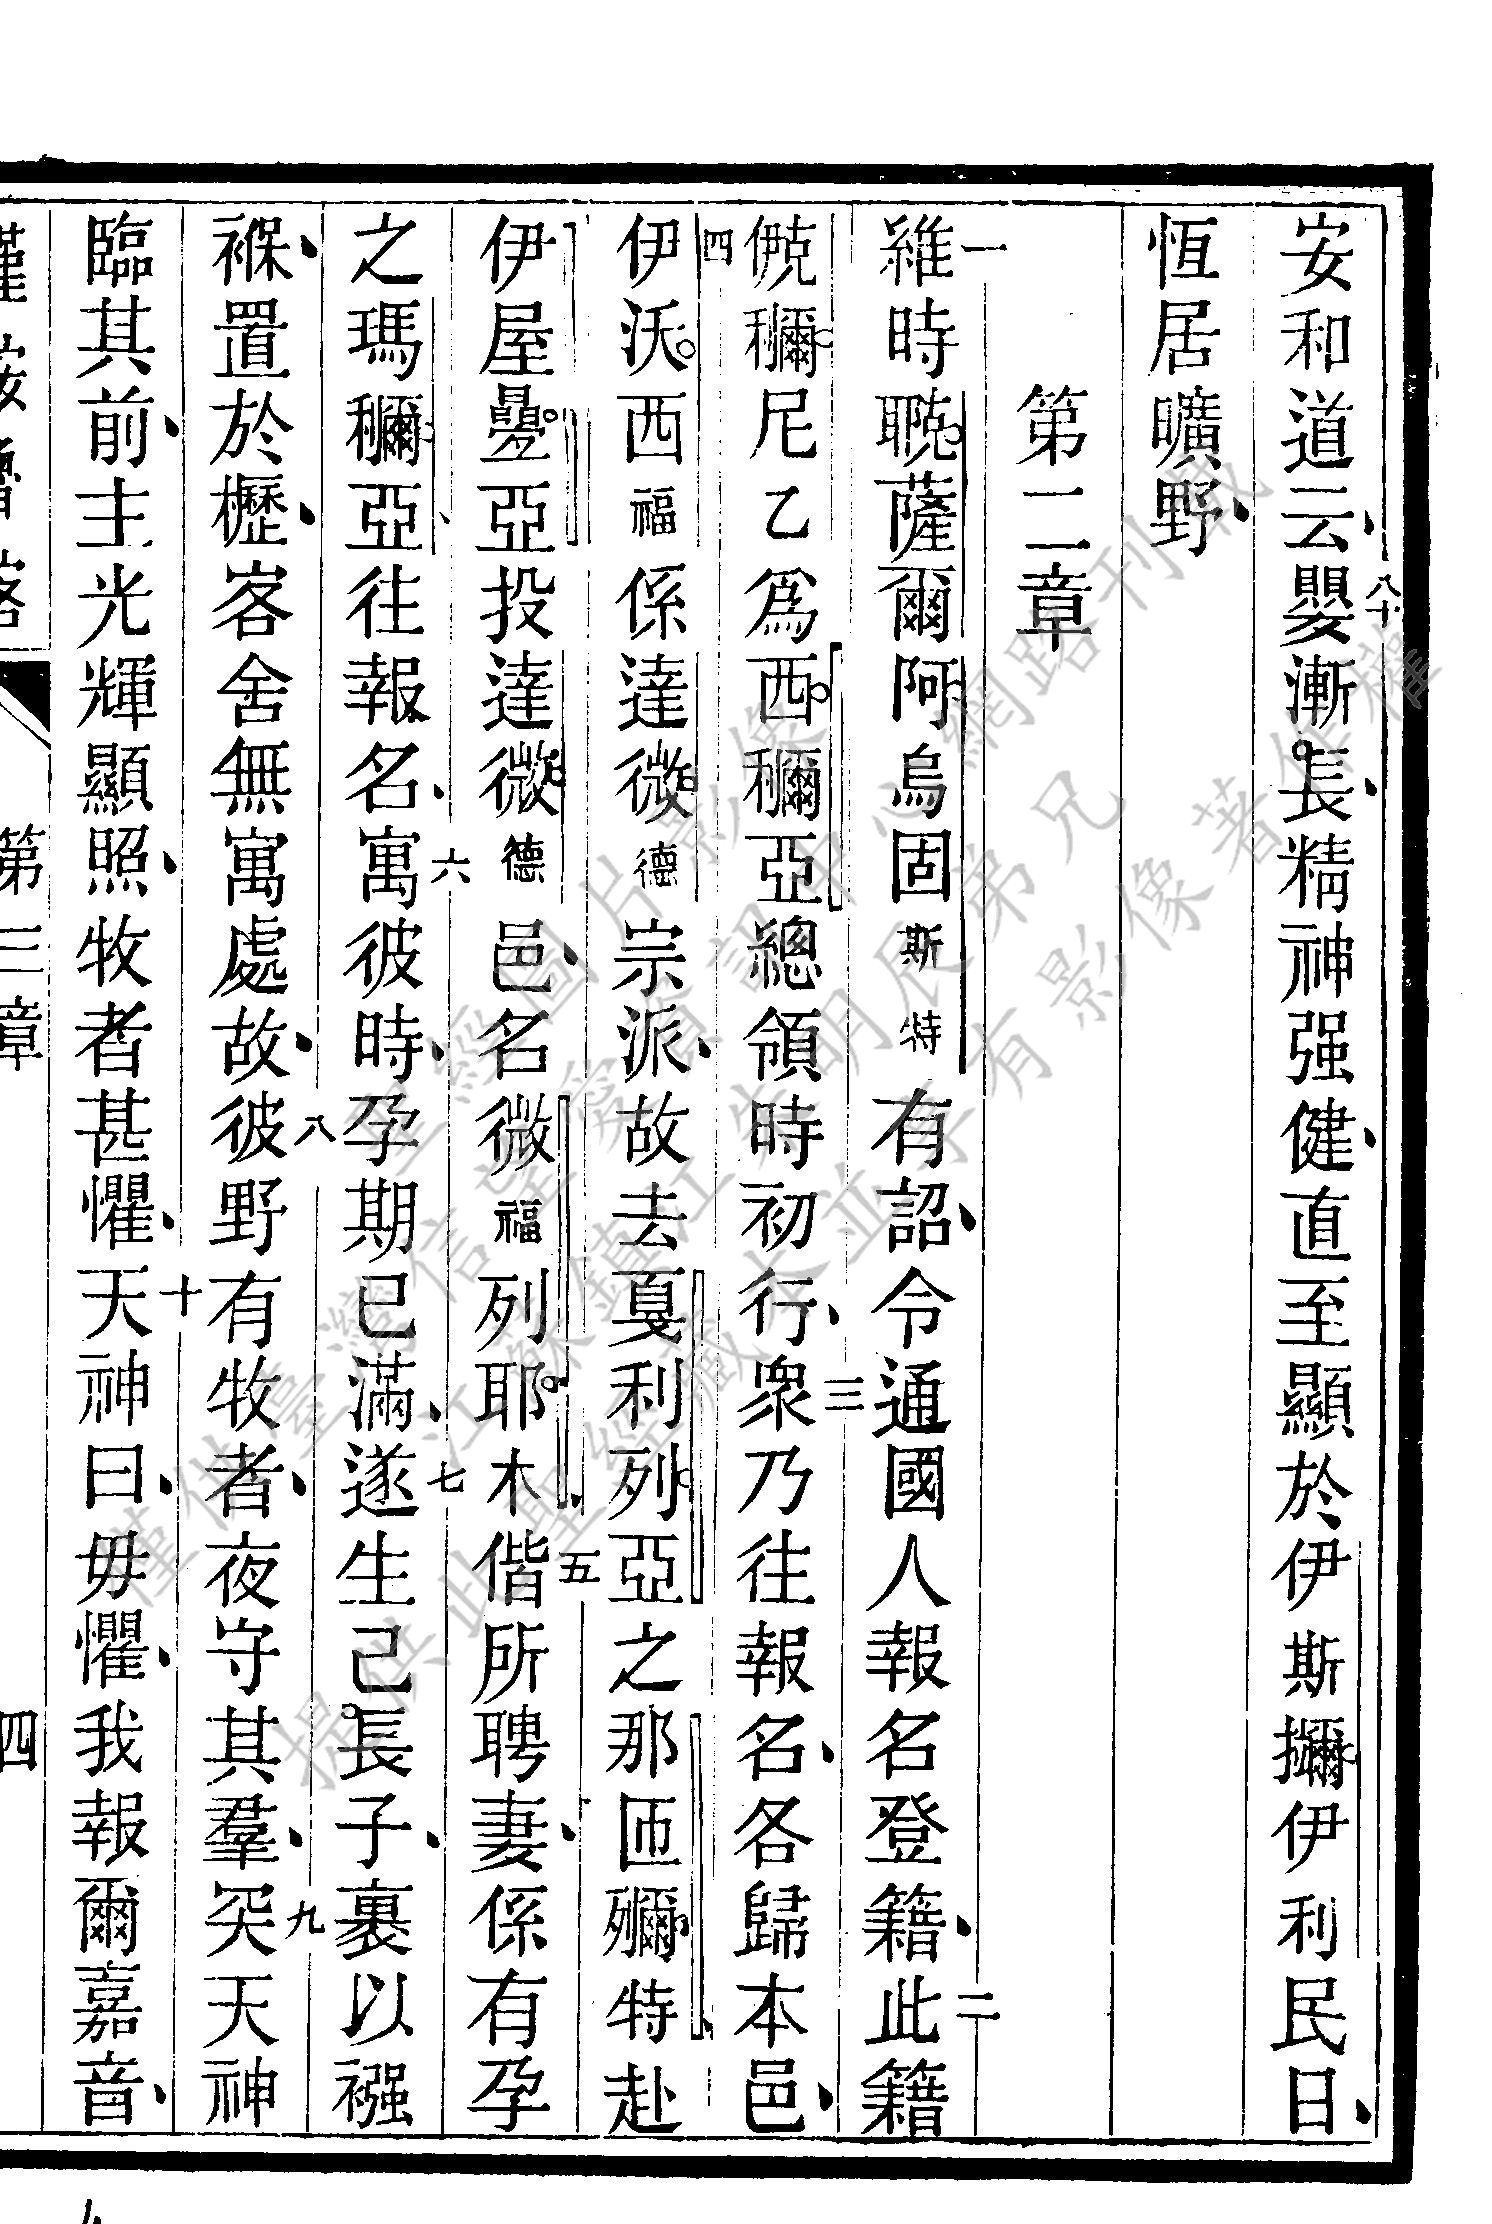 安和道云八十嬰漸長精神强健直至顯於伊斯𭡬伊利民日
恆居曠野
第二章
一維時聴薩爾阿烏固斯特有詔令通國人報名登籍二此籍
𠈁穪尼乙爲西穪亞總領時初行三眾乃往報名各歸本邑
四伊沃西福係達微德宗派故去戛利列亞之那匝特赴
伊屋亞投達微德邑名微福列耶木五偕所聘妻係有孕
之瑪穪亞往報名六寓彼時孕期已滿七遂生己長子裹以襁
褓置於櫪客舍無寓處故八彼野有牧者夜守其羣九突天神
臨其前主光輝顯照牧者甚懼十天神曰毋懼我報爾嘉音
第二章 四